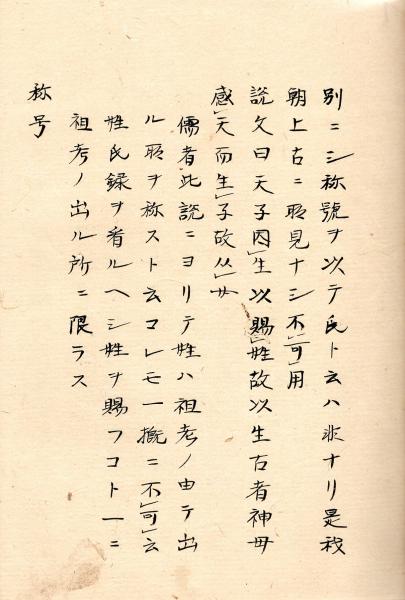 別ニシ称號ヲ以テ氏ト云ハ非ナリ是我
朝上古ニ所見ナシ不可用
説文曰天子因生以賜姓故以生古者神母
感天而生子故从女
儒者此説ニヨリテ姓ハ祖考ノ由テ出
ル所ヲ称スト云コレモ一概ニ不可云
姓氏録ヲ看ルヘシ姓ヲ賜フコト一ニ
祖考ノ出ル所ニ限ラス
称号